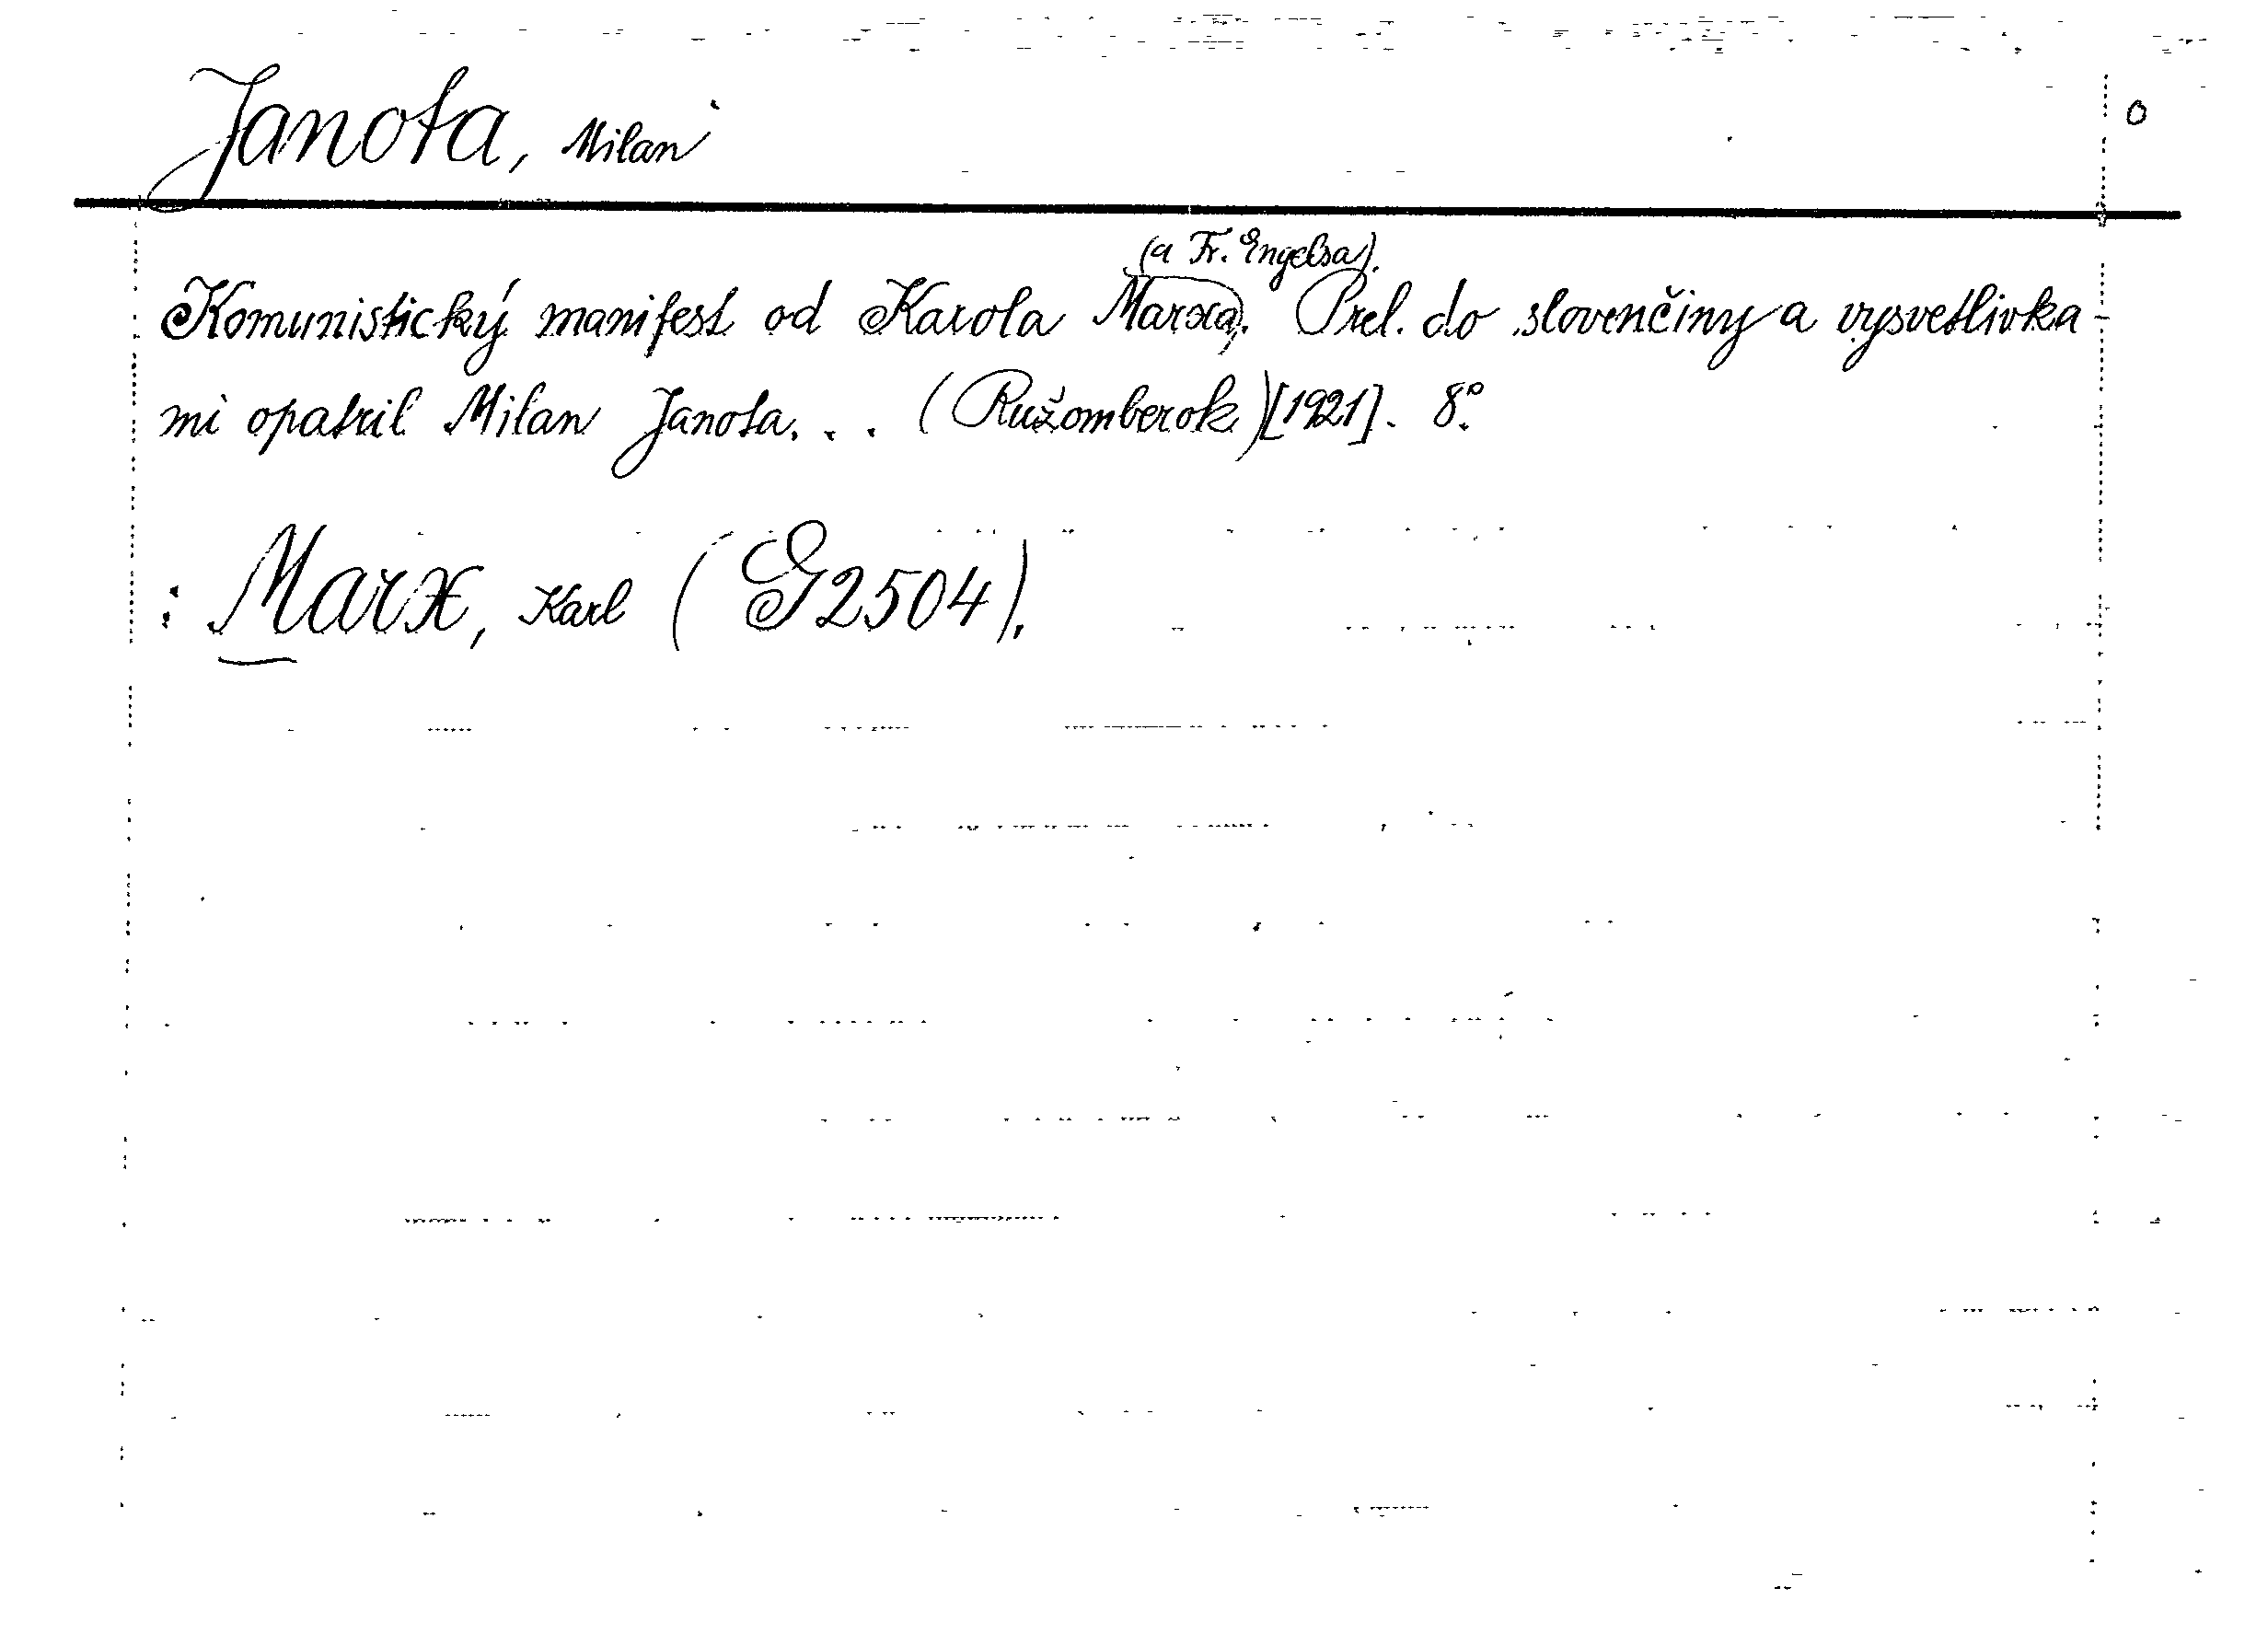 Janota, Milan
0
(a Fr. Engelsa).
Komunistický manifest od Karola Marxa, Prel. do slovenčiny a vysvetlivka-
mi opatril Milan Janota. . . (Ružomberok) [1921]. 8°.
: Marx, Karl (G2504).